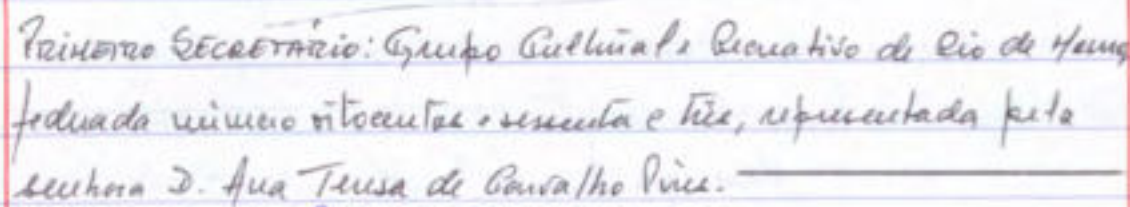 PRIMEIRO SECRETÁRIO: Grupo Cultural e Recreativo de Rio de Mouro,
federada número oitocentos e sessenta e três, representada pela
senhora D. Ana Teresa de Carvalho Pires.